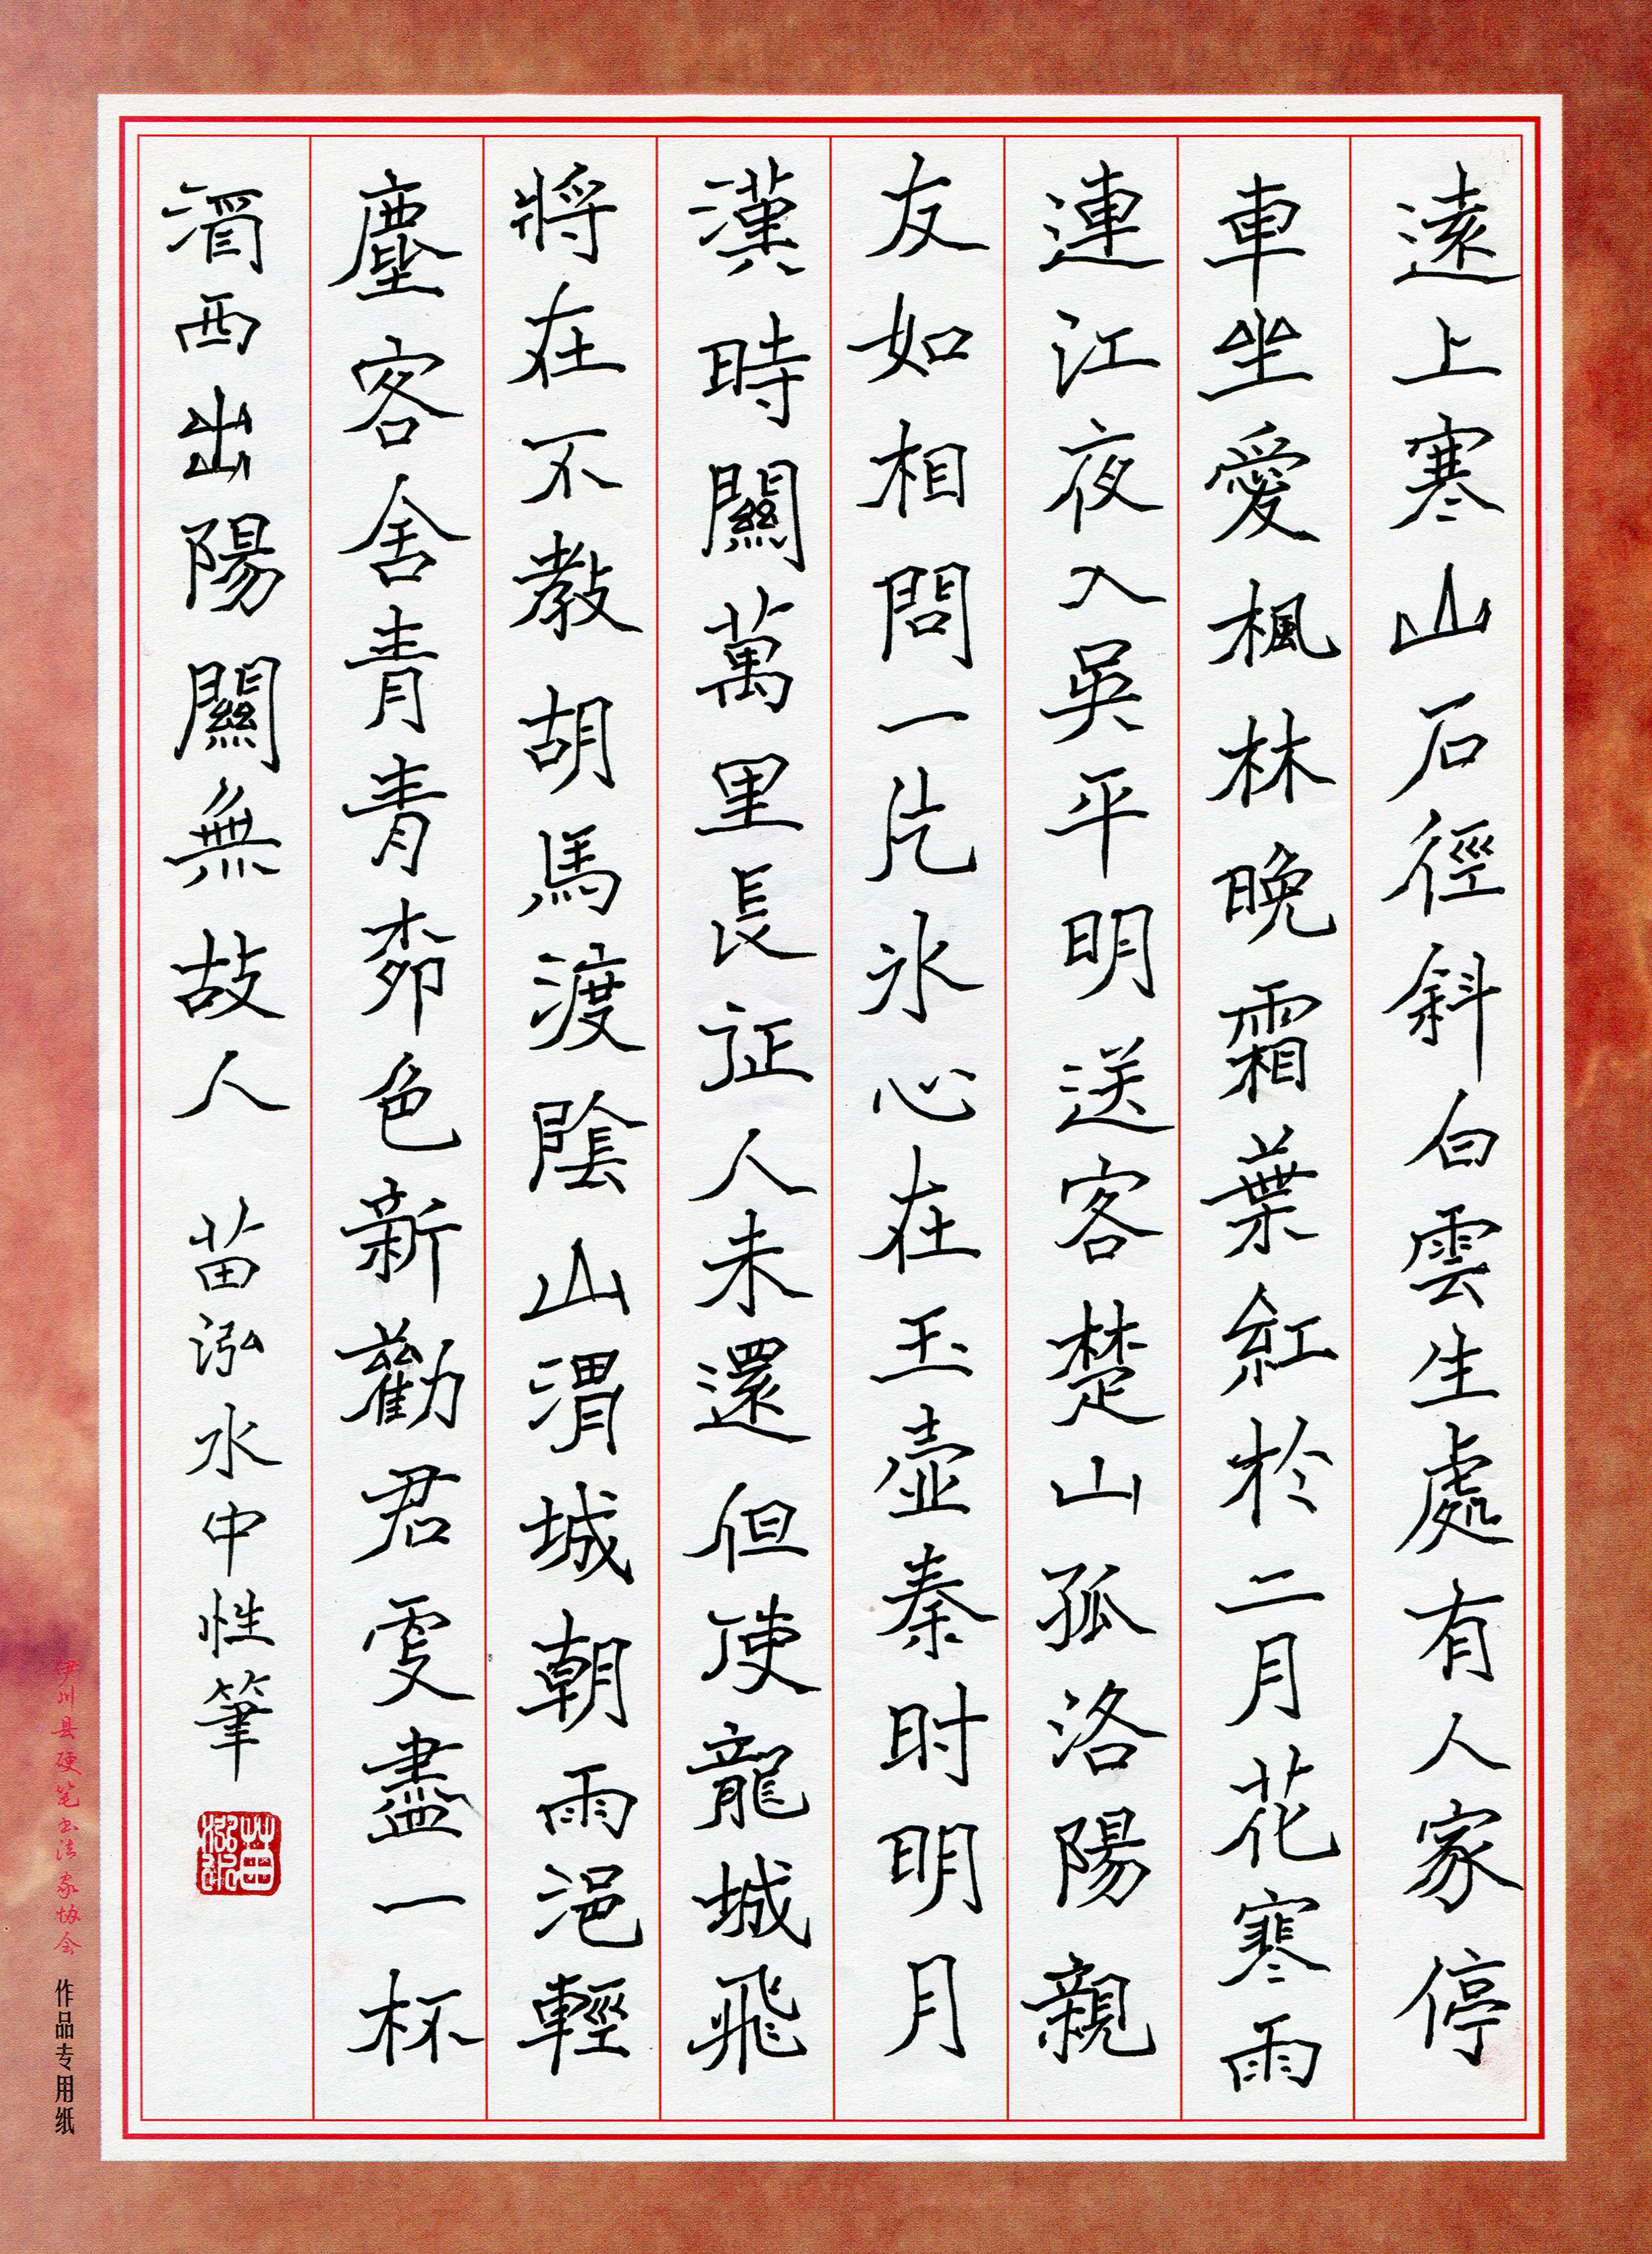 遠上寒山石徑斜白雲生處有人家停
車坐愛楓林晚霜葉紅於二月花寒雨
連江夜入吳平明送客楚山孤洛陽親
友如相問一片氷心在玉壺秦時明月
漢時關萬里長征人未還但使龍城飛
將在不教胡馬渡陰山渭城朝雨浥輕
塵客舍青青桺色新勸君更盡一杯
酒西出陽關無故人 苗泓水中性筆
苗泓水
伊川县硬笔书法家协会 作品专用纸